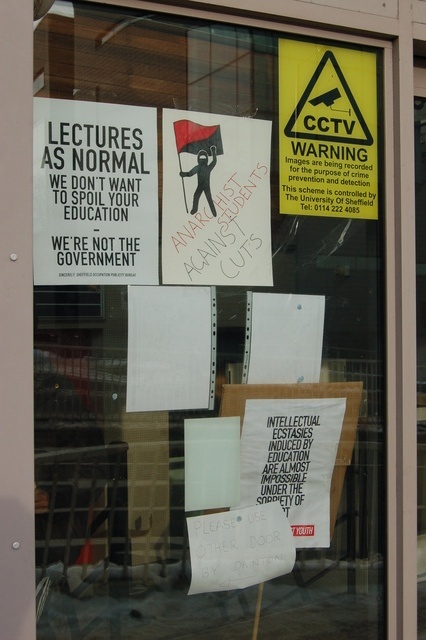 LECTURES
AS NORMAL
WE DON'T WANT
TO SPOIL YOUR
EDUCATION
-
WE'RE NOT THE
GOVERNMENT
SINCERELY, SHEFFIELD OCCUPATION PUBLICITY BUREAU
ANARCHIST
STUDENTS
AGAINST
CUTS
CCTV
WARNING
Images are being recorded
for the purpose of crime
prevention and detection
This scheme is controlled by
The University Of Sheffield
Tel: 0114 222 4085
INTELLECTUAL
ECSTASIES
INDUCED BY
EDUCATION
ARE ALMOST
IMPOSSIBLE
UNDER THE
SOBRIETY OF
YOUTH
PLEASE USE
OTHER DOOR
BY